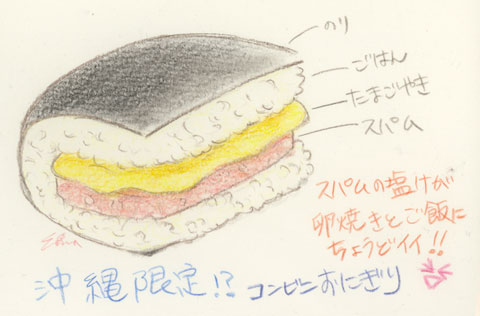 のり
ごはん
たまごやき
スパム
スパムの塩けが
卵焼きとご飯に
ちょうどイイ!!
沖縄限定!? コンビニおにぎり